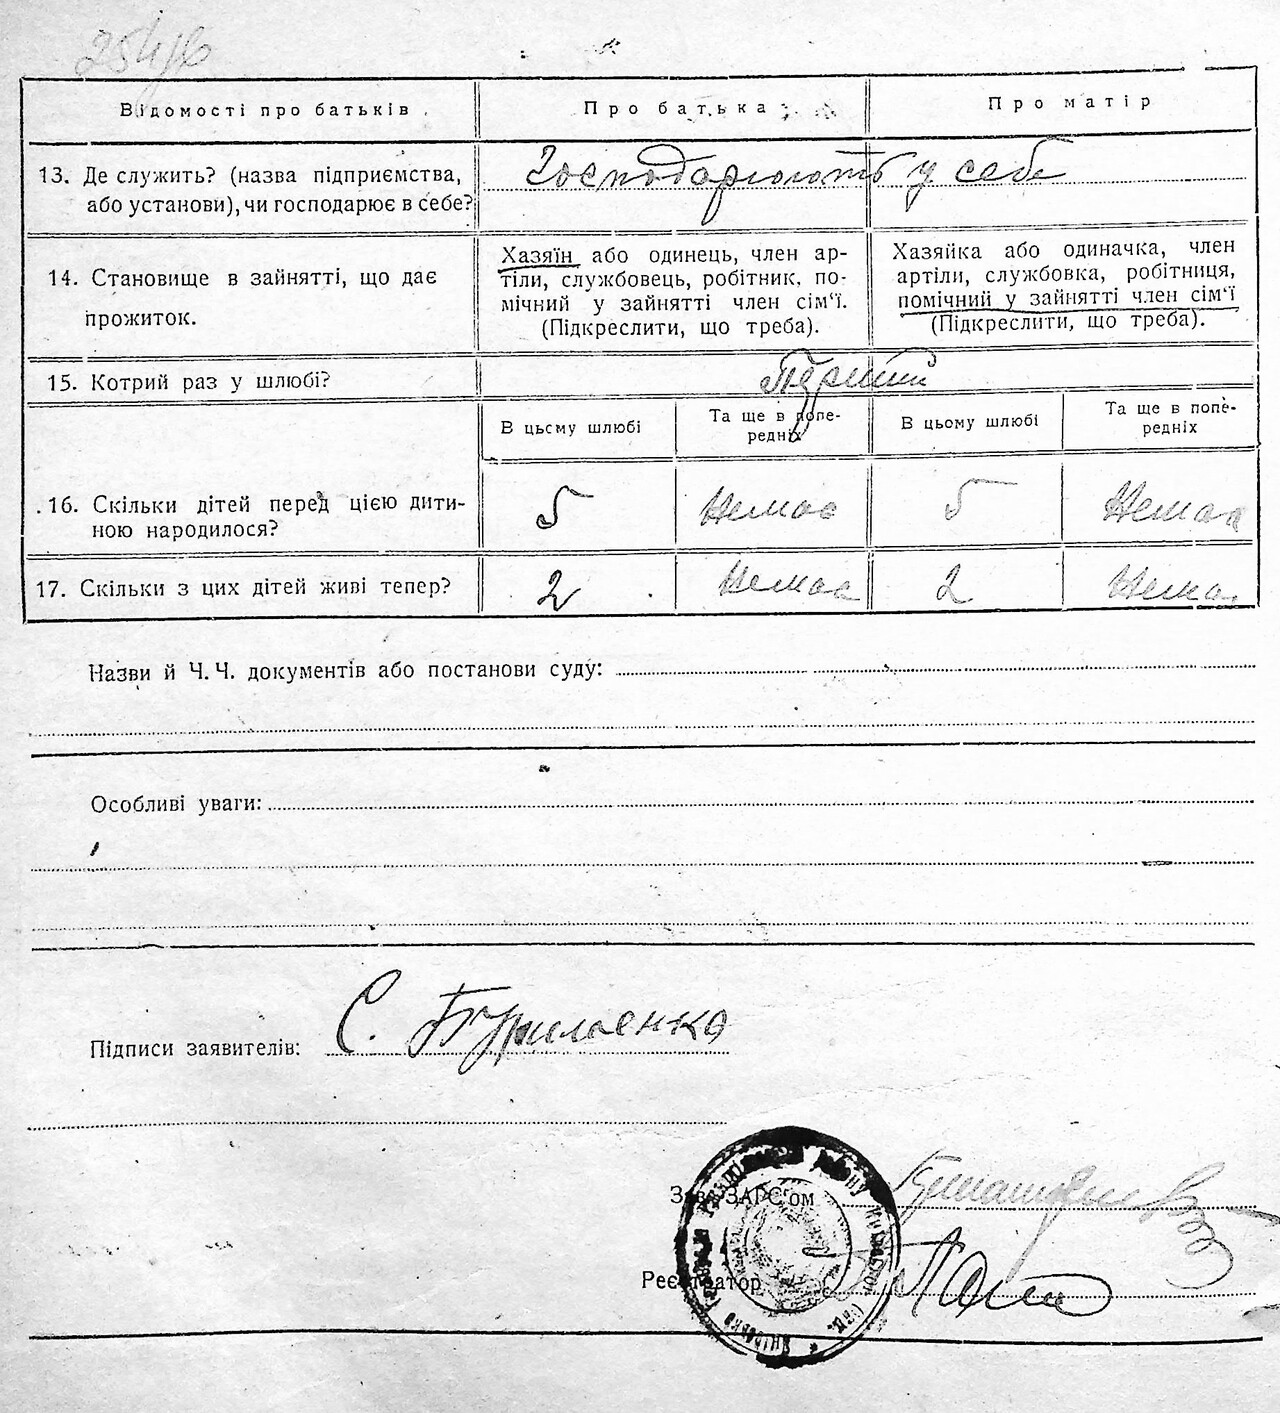 Відомості про батьків. Про батька: Про матір
13. Де служить? (назва підприємства, Господарюють у себе
або установи), чи господарює в себе?
14. Становище в зайнятті, що дає
прожиток.
Хазяїн або одинець, член ар-
тіли, службовець, робітник, по-
мічний у зайнятті член сім'ї.
(Підкреслити, що треба).
Хазяйка або одиначка, член
артіли, службовка, робітниця,
помічний у зайнятті член сім'ї
(Підкреслити, що треба).
15. Котрий раз у шлюбі? Перший
В цьому шлюбі
Та ще в попе-
редніх
В цьому шлюбі
Та ще в попе-
редніх
16. Скільки дітей перед цією дити-
ною народилося?
5 Немає 5 Немає
17. Скільки з цих дітей живі тепер? 2 Немає 2 Немає
Назви й Ч. Ч. документів або постанови суду:
Особливі уваги:
Підписи заявителів: С.
Зав. ЗАГС'ом
Реєстратор